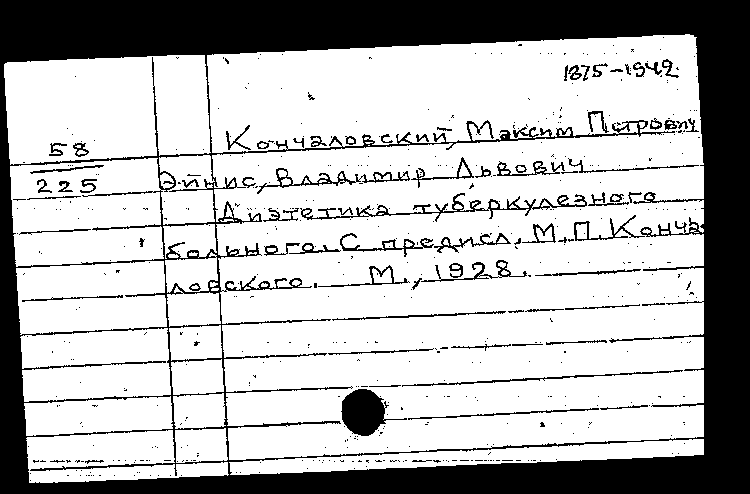 1875-1942.
Кончаловский, Максим Петрович
58
225
Эйнис, Владимир Львович
Диэтетика туберкулезного
больного. С предисл. М.П. Конча-
ловского. М., 1928.